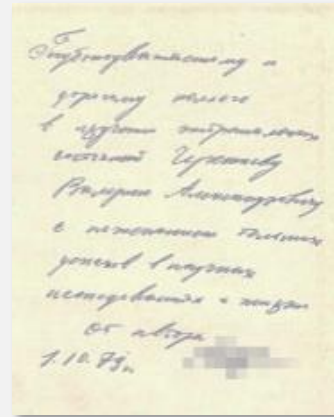 Глубокоуважаемому и
дорогому коллеге
в изучении
Валерию Александровичу
с пожеланием больших
успехов в научных
исследованиях и жизни
от автора
1.10.79г.